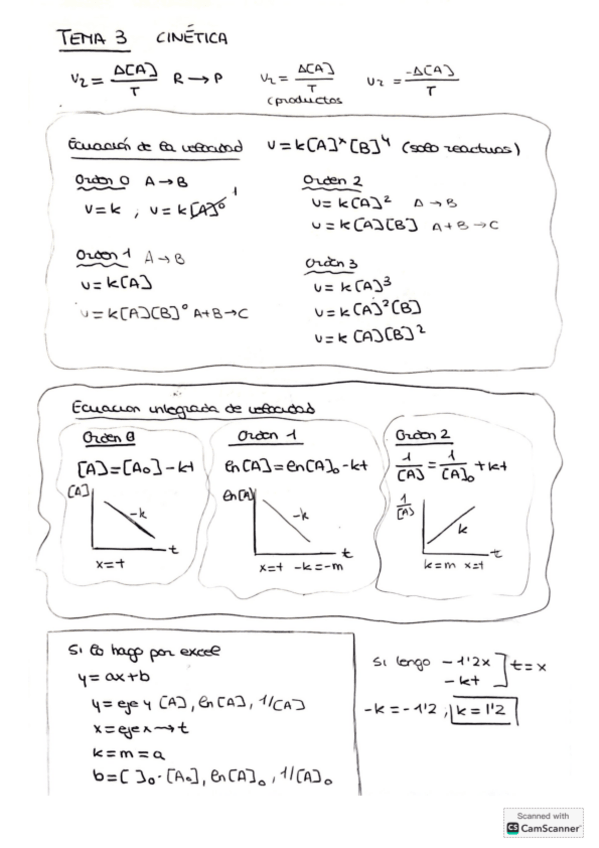 TEMA 3 CINÉTICA
V₂ = Δ[A]/T R → P V₂ = Δ[A]/T (productos V₂ = -Δ[A]/T
Ecuación de la velocidad V = k[A]ˣ[B]ʸ (solo reactivos)
Orden 0 A → B
V = k , V = k[A]⁰ 1
Orden 2
V = k[A]² A → B
V = k[A][B] A + B → C
Orden 1 A → B
V = k[A]
V = k[A][B]⁰ A+B → C
Orden 3
V = k[A]³
V = k[A]²[B]
V = k[A][B]²
Ecuacion integrada de velocidad
Orden 0
[A] = [A₀] - kt
[A]
-k
t
x = t
Orden 1
ln[A] = ln[A]₀ - kt
ln[A]
-k
t
x = t -k = -m
Orden 2
1/[A] = 1/[A]₀ + kt
1/[A]
k
t
k = m x = t
Si lo hago por excel
y = ax + b
y = eje y [A], ln[A], 1/[A]
x = eje x → t
k = m = a
b = [ ]₀ · [A₀], ln[A]₀, 1/[A]₀
Si tengo -1'2x
-kt
t = x
-k = -1'2 , k = 1'2
Scanned with
CS CamScanner